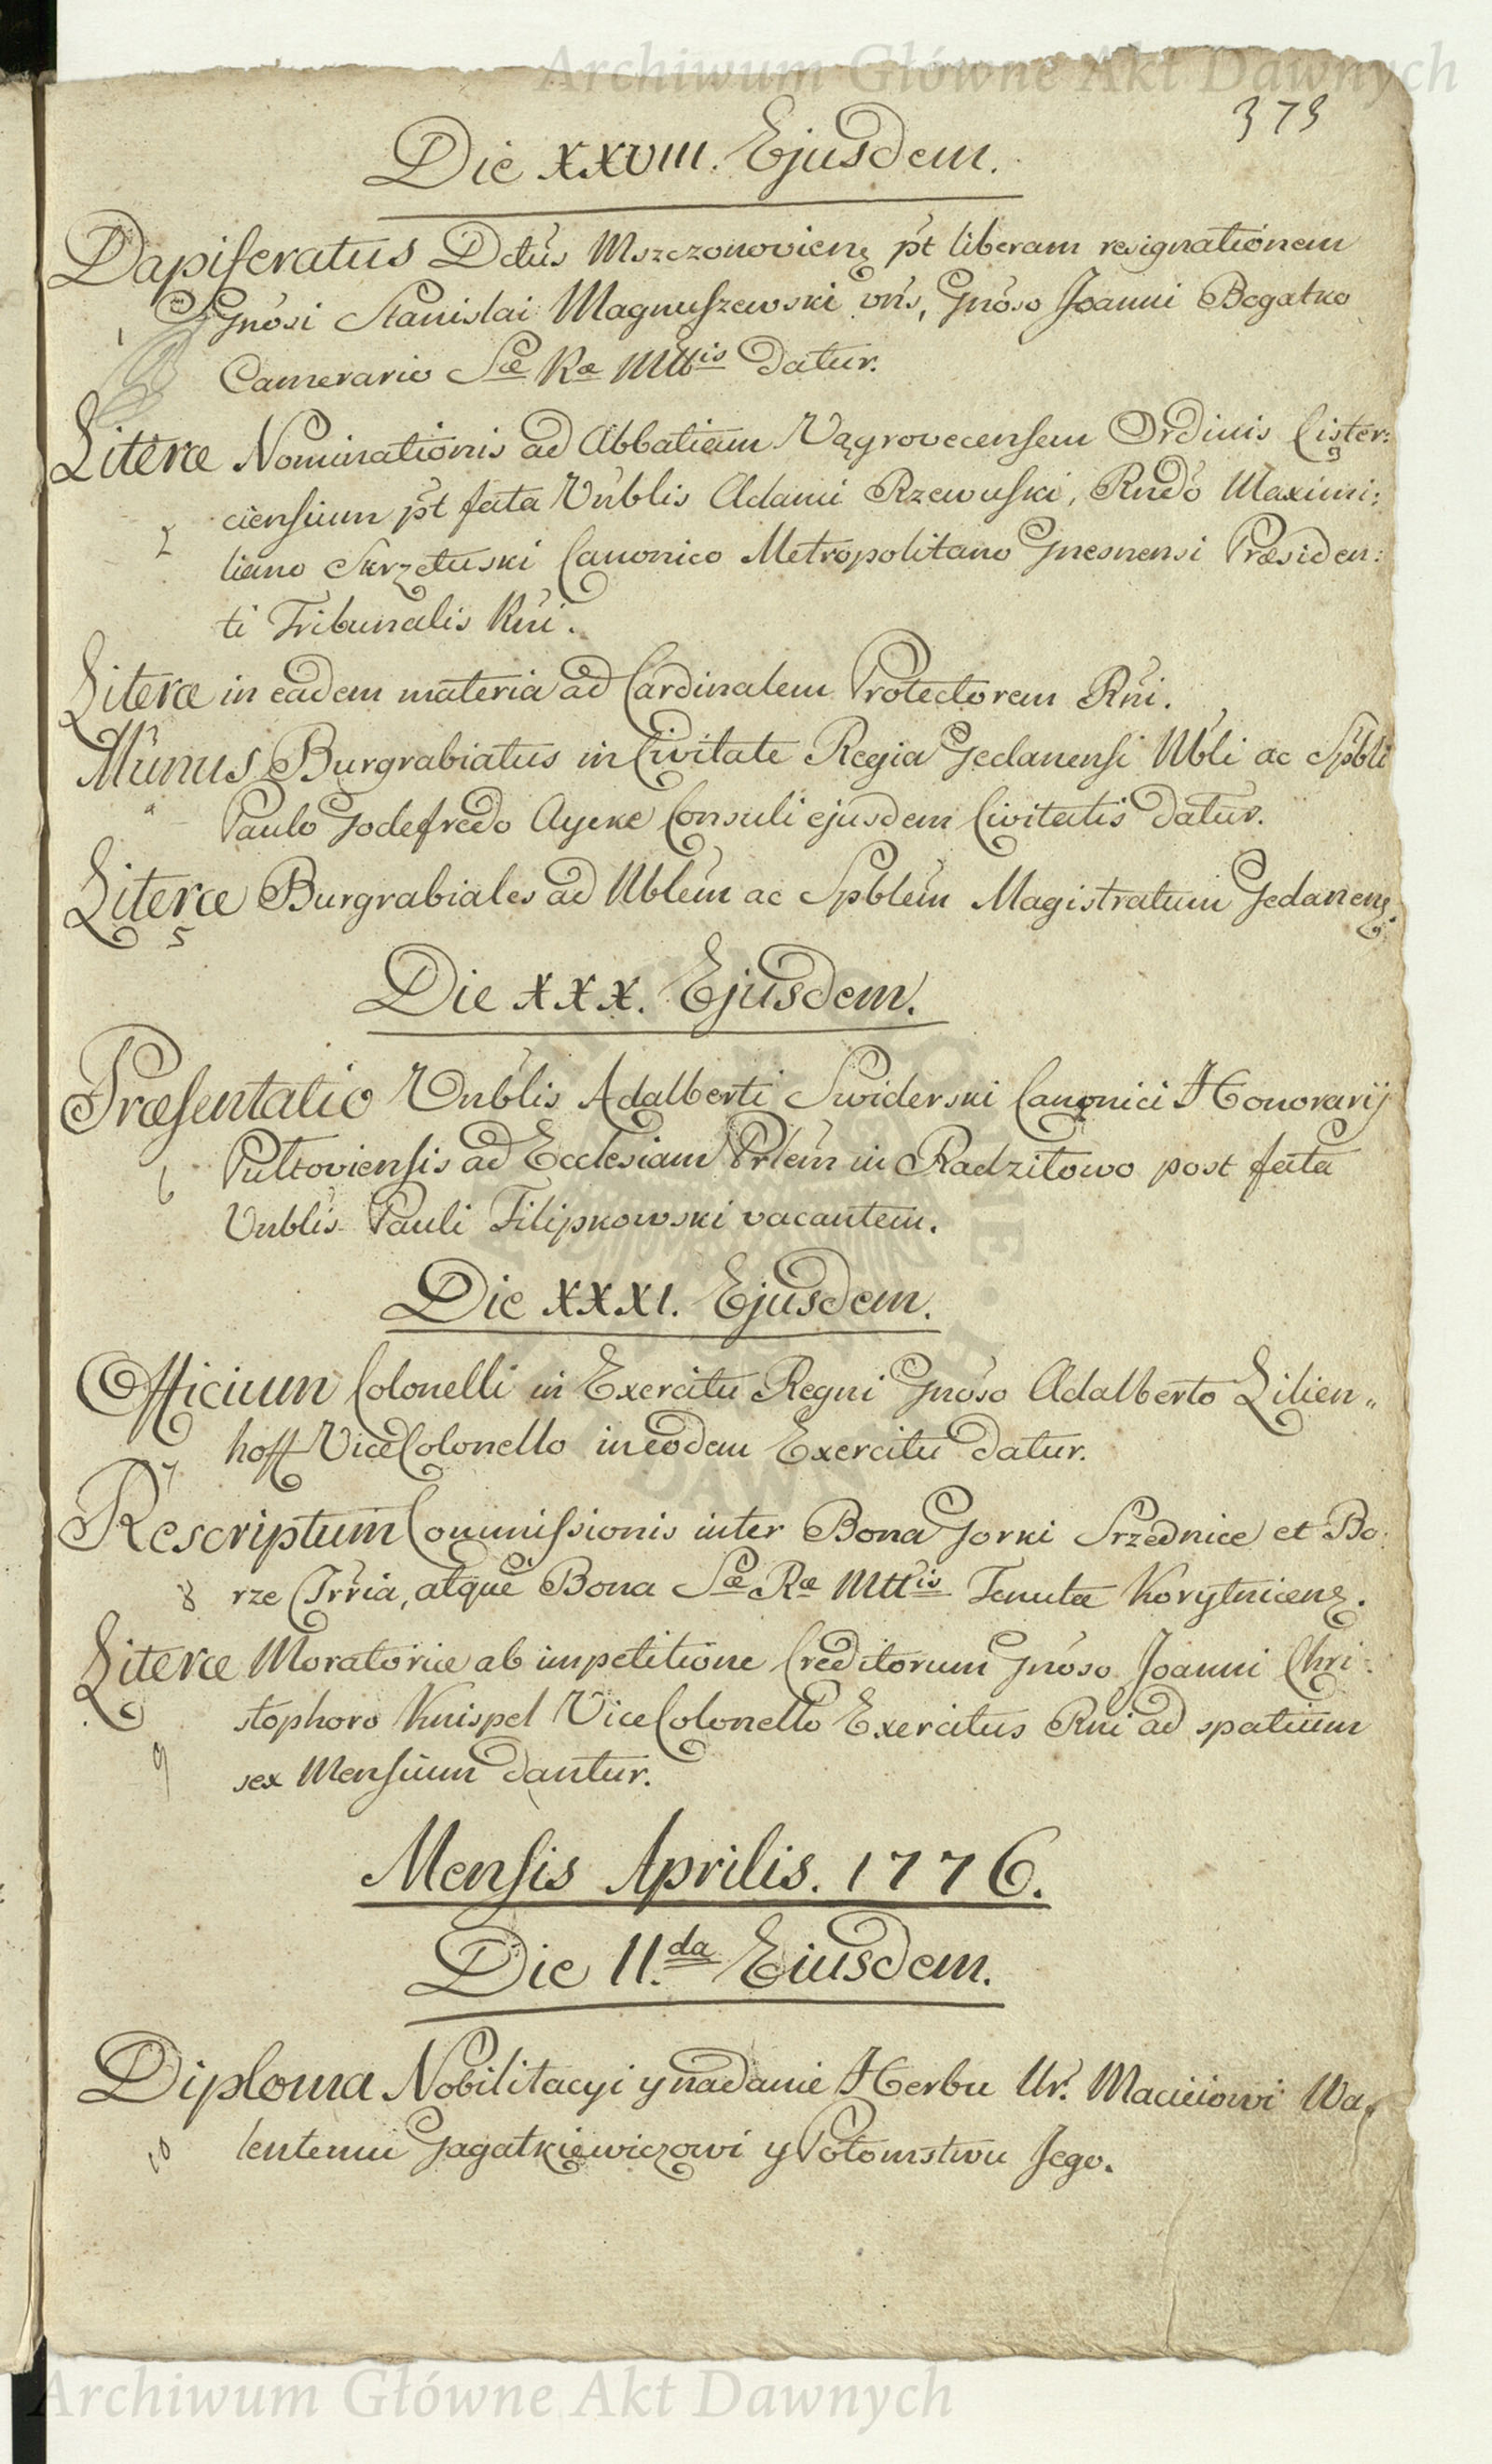 Archiwum Główne Akt Dawnych
373
Die XXVIII. Ejusdem.
Dapiferatus Dctûs Mszczonovienȩ pt liberam resignationem
1 Gnosi Stanislai Magnuszewski vris, Gnoso Joanni Bogatko
Camerario Sæ Ræ Mttis datur.
Literæ Nominationis ad Abbatiam Vągrovecensem Ordinis Cister:
2 ciensium pt fata Vnblis Adami Rzewuski, Rndo Maximi:
liano Skrzetuski Canonico Metropolitano Gnesnensi Præsiden:
ti Tribunalis Rni.
Literæ in eadem materia ad Cardinalem Protectorem Rni.
Munus Burgrabiatus in Civitate Regia Gedanensi Nbli ac Spbli
Paulo Godefredo Aycke Consuli ejusdem Civitatis datur.
Literæ Burgrabiales ad Nblem ac Spblem Magistratum Gedanenȩ.
5
Die XXX. Ejusdem.
Præsentatio Vnblis Adalberti Swiderski Canonici Honorarij
6 Pultoviensis ad Ecclesiam Prlem in Radzilowo post fata
Vnblis Pauli Filipkowski vacantem.
Die XXXI. Ejusdem.
Officium Colonelli in Exercitu Regni Gnoso Adalberto Lilien„
7 hoff ViceColonello in eodem Exercitu datur.
Rescriptum Commissionis inter Bona Gorki Srzednice et Bo:
8 rze Trria, atque Bona Sæ Ræ Mttis Tenutæ Korytnicenȩ.
Literæ Moratoriæ ab impetitione Creditorum Gnoso Joanni Chri:
stophoro Knispel ViceColonello Exercitus Rni ad spatium
9 sex Mensium dantur.
Mensis Aprilis. 1776.
Die II.da Eiusdem.
Diploma Nobilitacyi y nadanie Herbu Ur. Macieiowi Wa„
10 lentemu Gagatkiewiczowi y Potomstwu Jego.
Archiwum Główne Akt Dawnych